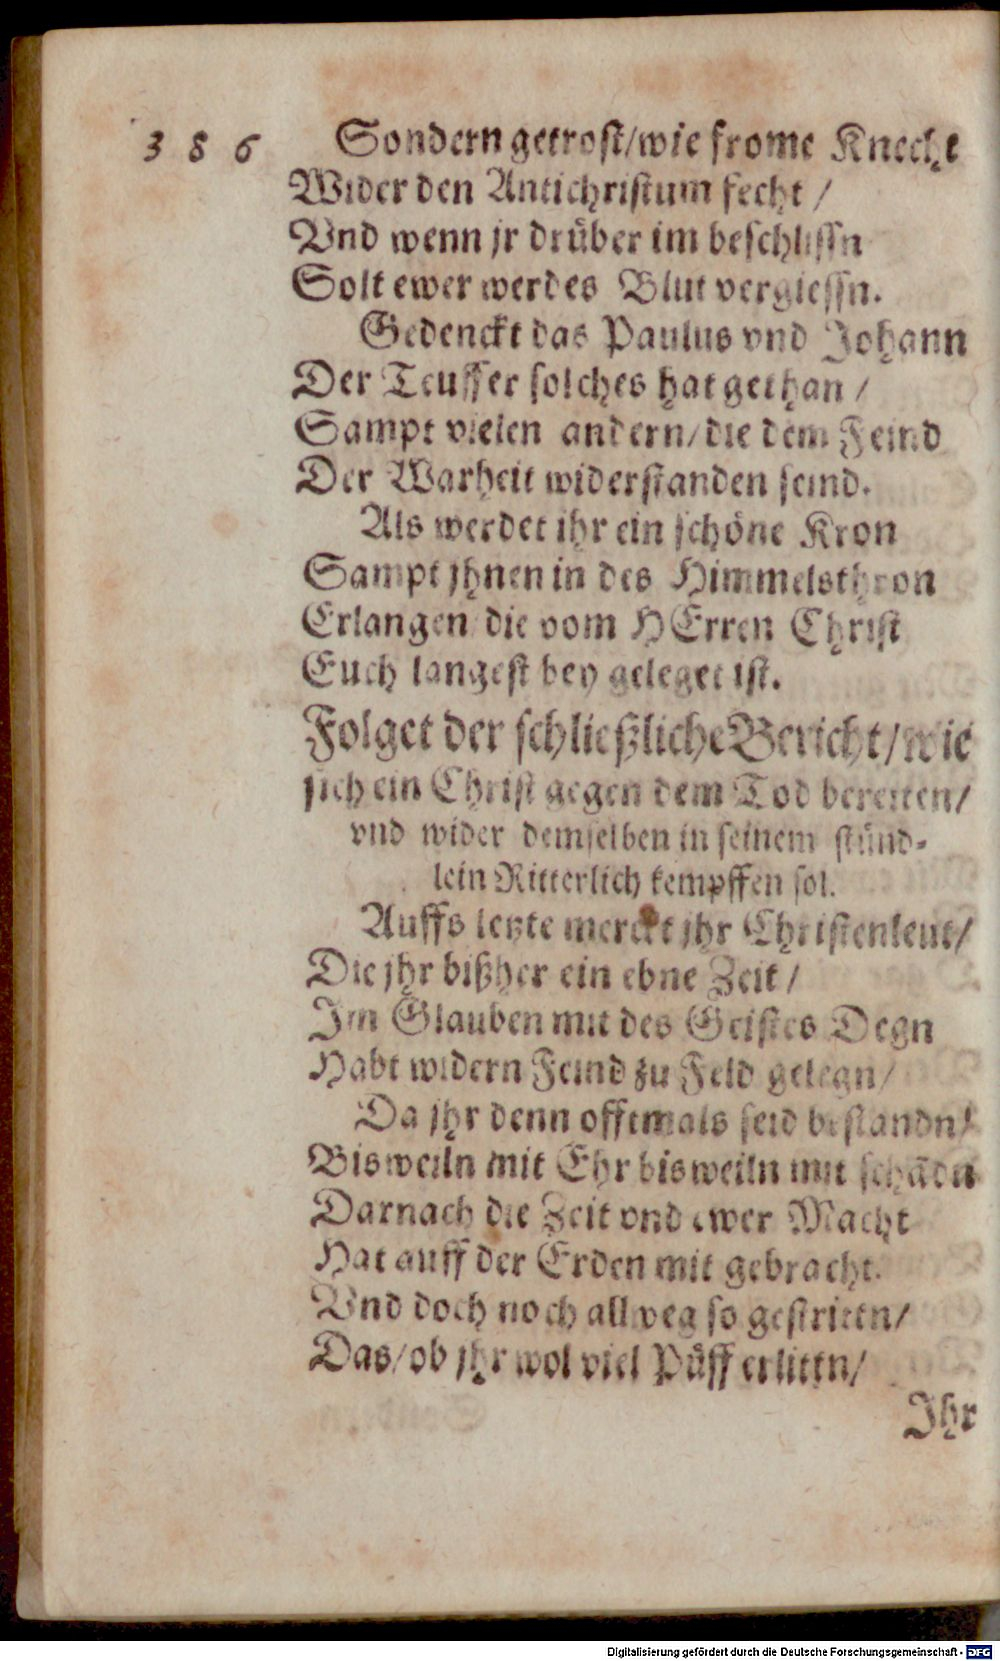 386
Sondern getrost/wie frome Knecht
Wider den Antichristum fecht /
Vnd wenn jr drüber im beschlissn
Solt ewer werdes Blut vergiessn.
Gedenckt das Paulus vnd Johann
Der Teuffer solches hat gethan /
Sampt vielen andern/die dem Feind
Der Warheit widerstanden seind.
Als werdet ihr ein schöne Kron
Sampt jhnen in des Himmelsthron
Erlangen die vom HErren Christ
Euch langest bey geleget ist.
Folget der schließliche Bericht/wie
sich ein Christ gegen dem Tod bereiten/
vnd wider demselben in seinem stünd-
lein Ritterlich kempffen sol.
Auffs letzte merckt jhr Christenleut/
Die jhr bißher ein ebne Zeit /
Im Glauben mit des Geistes Degn
Habt widern Feind zu Feld gelegn/
Da jhr denn offtmals seid bestandn/
Bisweiln mit Ehr bisweiln mit schādn
Darnach die Zeit vnd ewer Macht
Hat auff der Erden mit gebracht.
Vnd doch noch allweg so gestrittn/
Das/ob jhr wol viel Püff erlittn/
Ihr
Digitalisierung gefördert durch die Deutsche Forschungsgemeinschaft - DFG